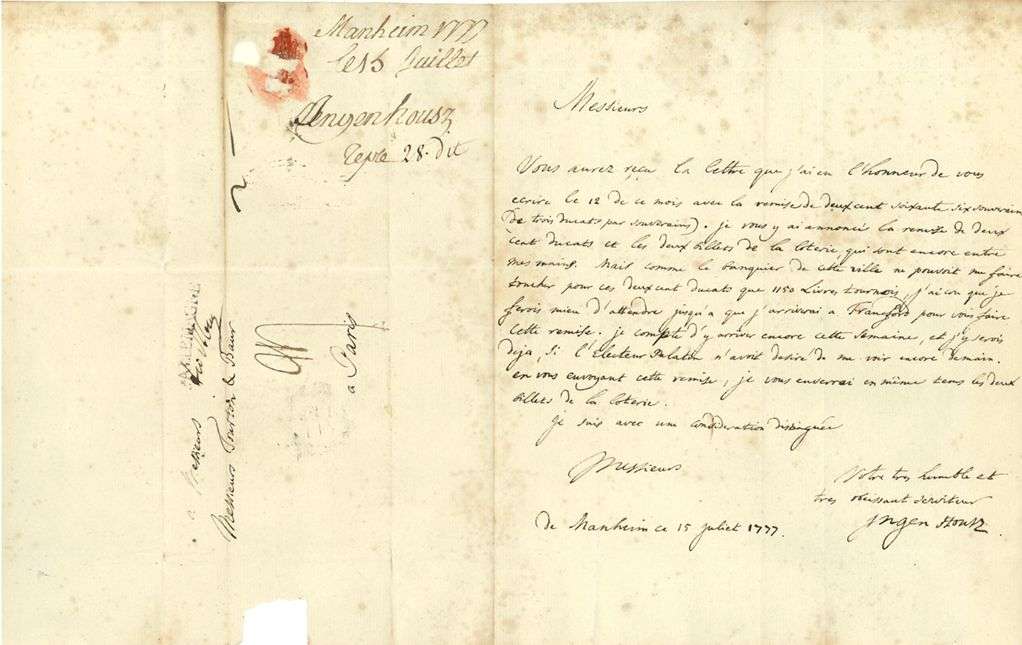 Manheim 1777
le 15 Juillet
Ingenhousz
28. dit
a Messieurs
Messieurs Tourton & Baur
a Paris
Messieurs
Vous aurez reçu la lettre que j'ai eu l'honneur de vous
ecrire le 12 de ce mois avec la remise de deux cent soixante six souverains
(de trois ducats par souverains). je vous y ai annoncé la remise de deux
cent ducats et les deux billets de la loterie, qui sont encore entre
mes mains. Mais comme le banquier de cette ville ne pouvoit me faire
toucher pour ces deux cent ducats que 1150 Livres tournois, j'ai cru que je
ferois mieu d'attendre jusqu'a que j'arriverai a Francford pour vous faire
cette remise. je compte d'y arriver encore cette semaine, et j'y serois
deja, si l'Electeur Palatin n'avoit desiré de me voir encore demain.
en vous envoyant cette remise, je vous enverrai en même tems les deux
billets de la loterie.
je suis avec une consideration distinguée
Messieurs
Votre tres humble et
tres obeissant serviteur
Ingen Housz
de Manheim ce 15 juliet 1777.